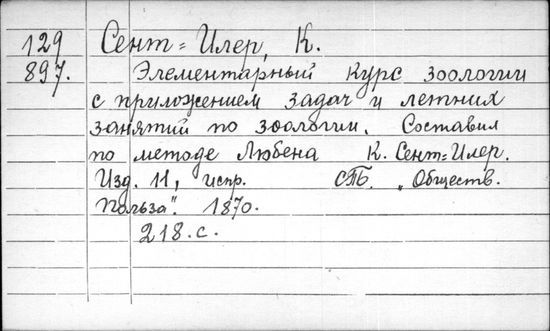 129 Сент=Илер, К.
897. Элементарный курс зоологии
с приложением задач и летних
занятий по зоологии. Составил
по методе Любена К. Сент=Илер.
Изд. 11, испр. СПБ. „Обществ.
Польза". 1870.
218.с.